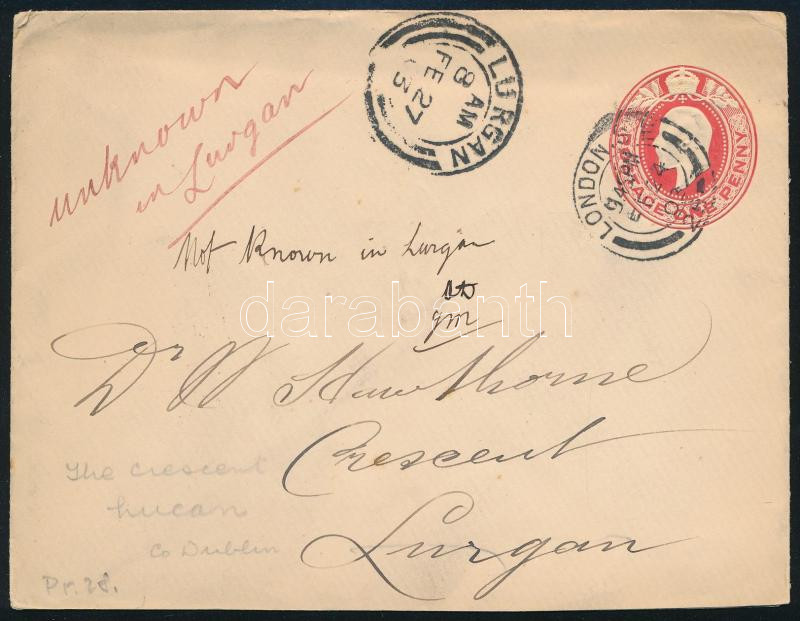 unknown
in Lurgan
LURGAN
8 AM
FE 27
03
LONDON
POSTAGE ONE PENNY
Not Known in Lurgan
gm
darabanth
Dr W Hawthorne
Crescent
Lurgan
The Crescent
Lucan
Co Dublin
Pr. 28.